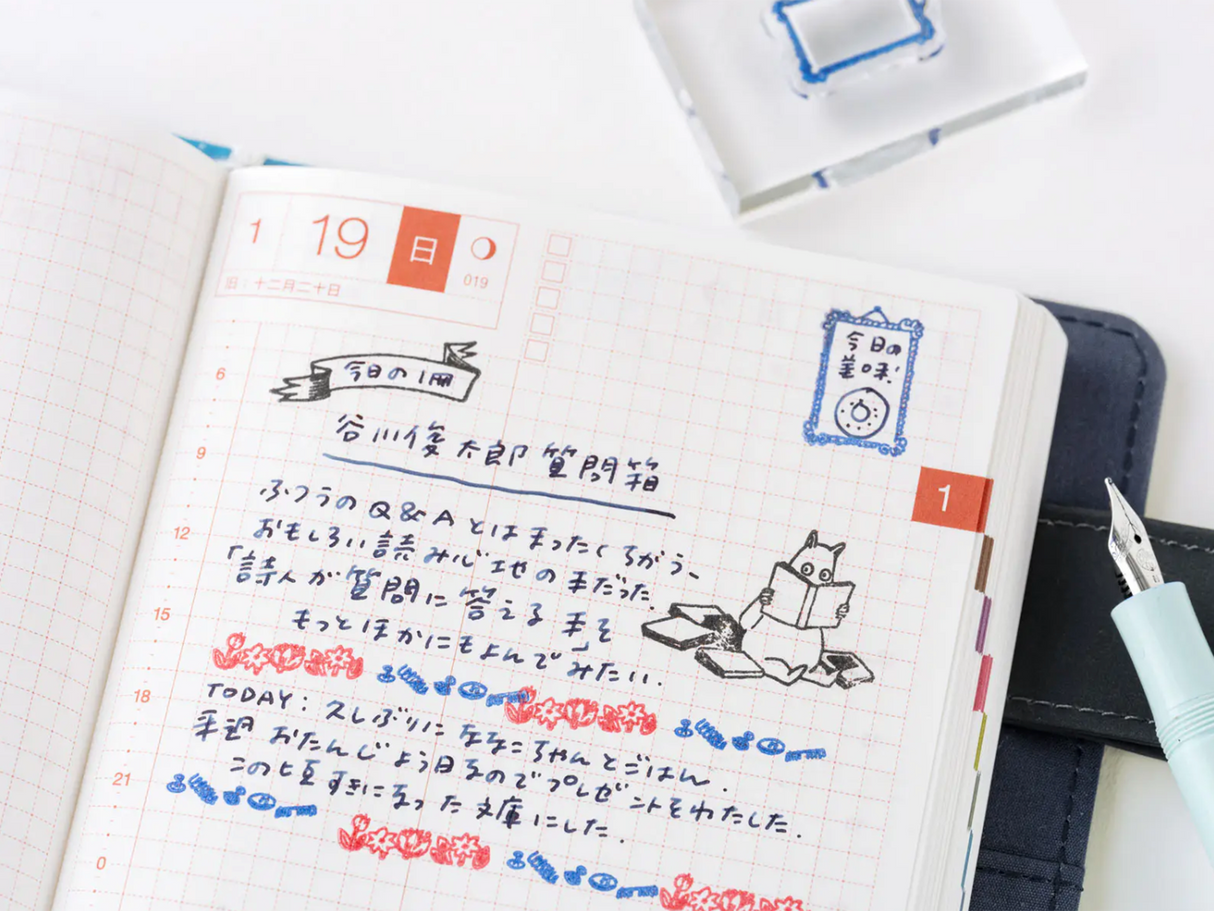 1 19 日
019
旧：十二月二十日
今日の
美味！
6
今日の1冊
9
谷川俊太郎質問箱
1
12
ふつうのQ&Aとはまったくちがう、
おもしろい読み心地の本だった。
「詩人が質問に答える本」を
15
もっとほかにもよんでみたい.
18
TODAY：久しぶりにななこちゃんとごはん.
来週おたんじょう日なのでプレゼントをわたした.
21
この七夏すきになった文庫にした.
0